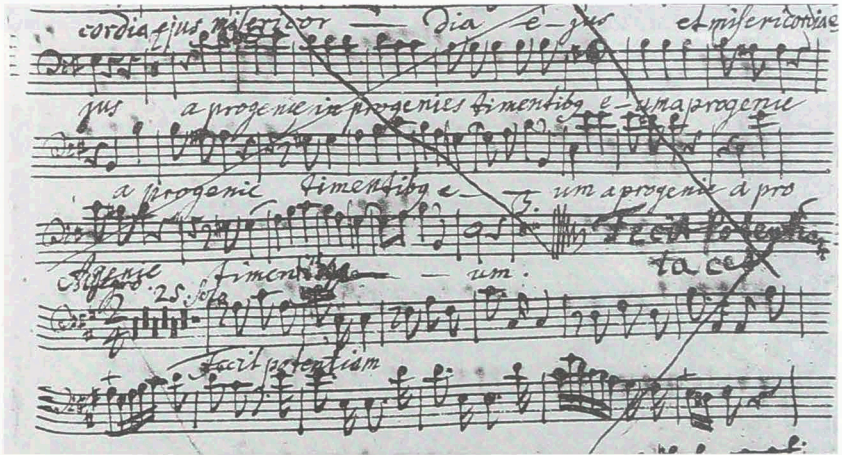 cordia ejus misericor — dia e-jus et misericordia e
jus a progenie in progenies timentibq e-um a progenie
a progenie timentibq e- - um a progenie a pro
Fecit potentiam
genie timentibq - um.
tacet
25 Solo
Fecit potentiam